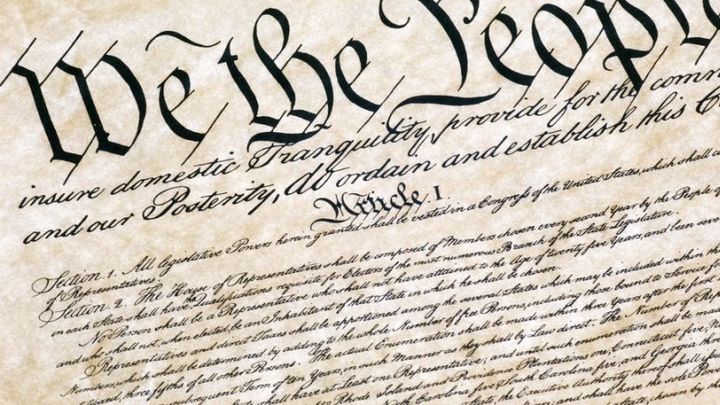 We the People
insure domestic Tranquility, provide for the comm
and our Posterity, do ordain and establish this C
Article. I.
Section. 1. All legislative Powers herein granted shall be vested in a Congress of the United States, which shall
of Representatives.
Section. 2. The House of Representatives shall be composed of Members chosen every second Year by the People
in each State shall have the Qualifications requisite for Electors of the most numerous Branch of the State Legislature.
No Person shall be a Representative who shall not have attained to the Age of twenty five Years, and been seve
and who shall not, when elected, be an Inhabitant of that State in which he shall be chosen.
Representatives and direct Taxes shall be apportioned among the several States which may be included within
Numbers, which shall be determined by adding to the whole Number of free Persons, including those bound to Service fo
three fifths of all other Persons. The actual Enumeration shall be made within three Years after the first
subsequent Term of ten Years, in such Manner as they shall by Law direct. The Number of Rep
shall have at Least one Representative; and until such enumeration shall be ma
Rhode Island and Providence Plantations one, Connecticut five,
North Carolina five, South Carolina five, and Georgia thr
State, the Executive Authority thereof shall